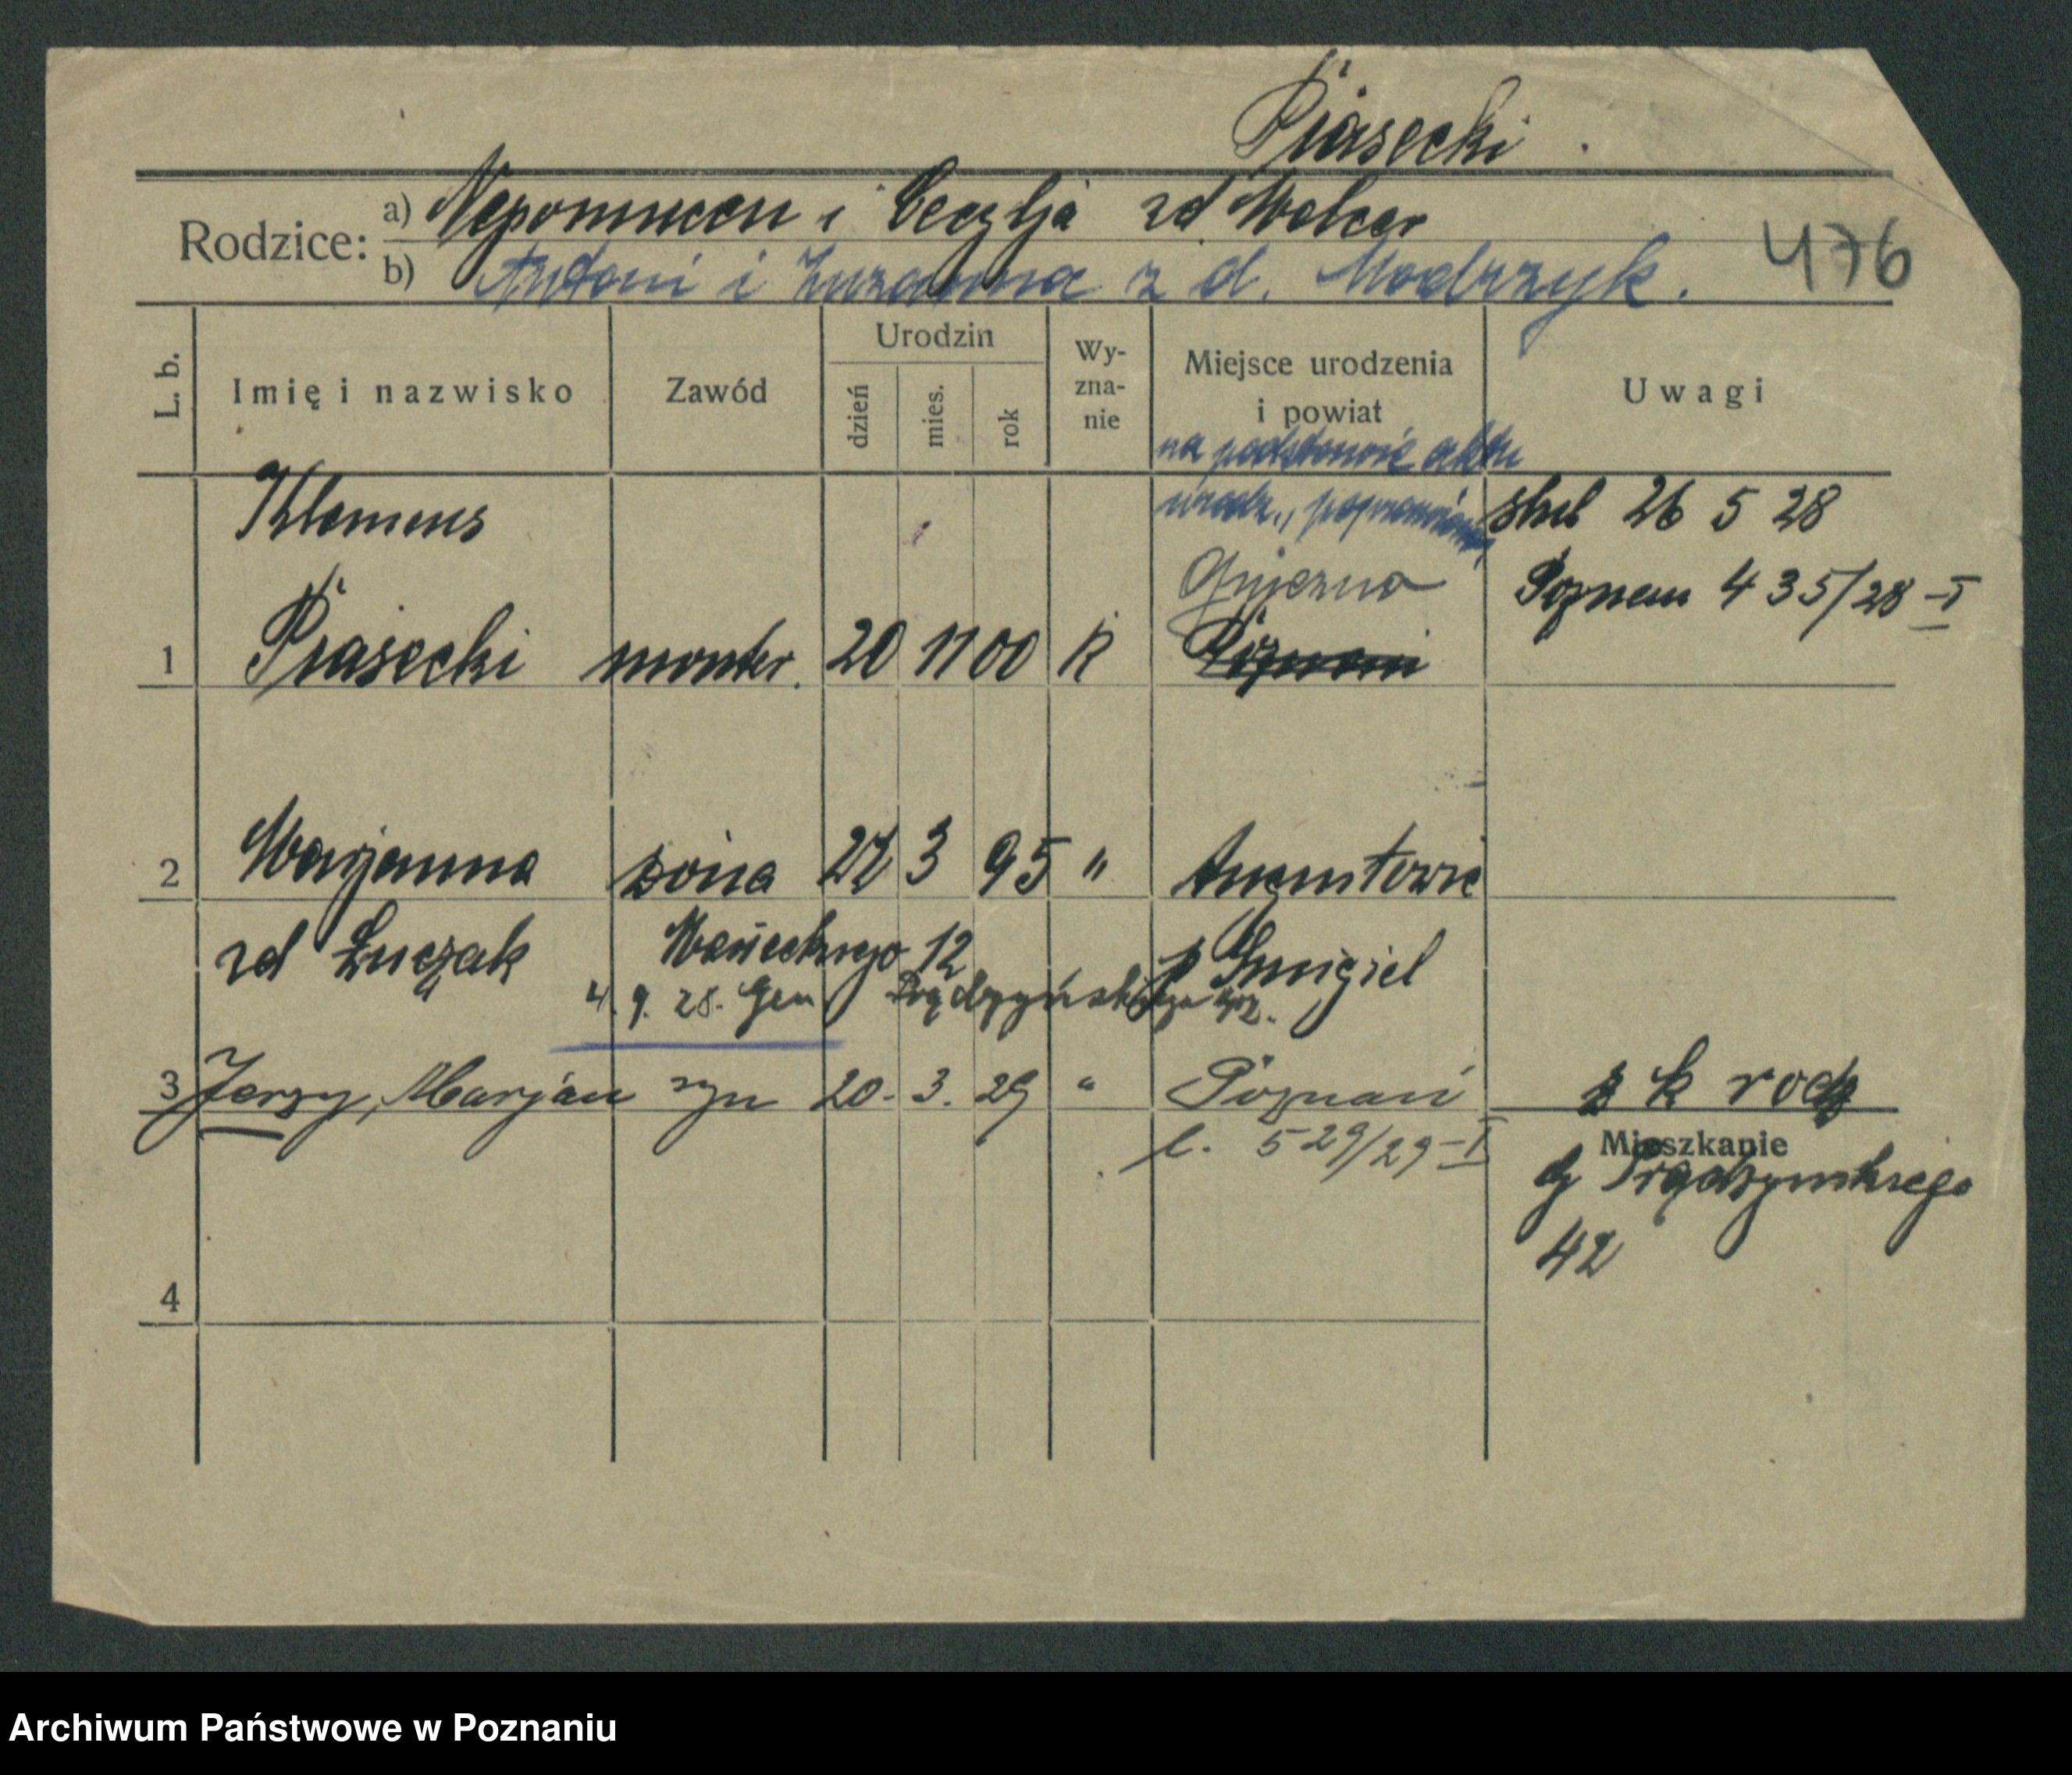 Piasecki.
Rodzice: a) Nepomucen i Cecylja zd Melcer
476
b) Antoni i Zuzanna z d. Modrzyk.
L. b.
Imię i nazwisko
Zawód
Urodzin
dzień
mies.
rok
Wy-
zna-
nie
Miejsce urodzenia
i powiat
Uwagi
na podstawie aktu
urodz., poprawiono
Klemens
ślub 26 5 28
Gniezno
Poznań 435/28-I
1 Piasecki monter. 20 11 00 k Poznań
2 Marjanna żona 22 3 95 " Augustowie
zd Łuczak
12 p Śmigiel
4. 9. 28. Gen Prądzyńskiego
3 Jerzy, Marjan syn 20. 3. 29 " Poznań
z k rodz
l. 529/29-I
Mieszkanie
Prądzynskiego
42
4
Archiwum Państwowe w Poznaniu